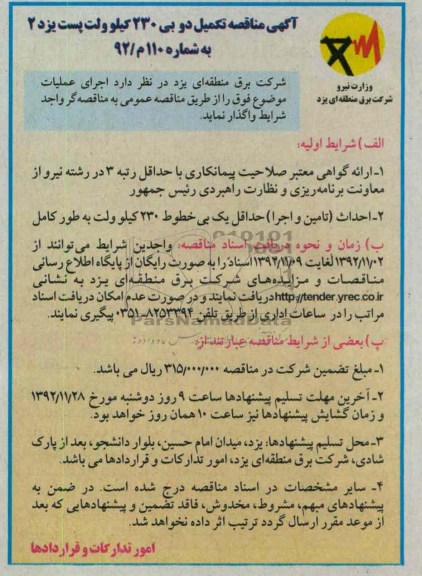 آگهی مناقصه تکمیل دو بی ۲۳۰ کیلو ولت پست یزد ۲
به شماره ۱۱۰م/۹۲
وزارت نیرو
شرکت برق منطقه‌ای یزد
شرکت برق منطقه‌ای یزد در نظر دارد اجرای عملیات
موضوع فوق را از طریق مناقصه عمومی به مناقصه‌گر واجد
شرایط واگذار نماید.
الف) شرایط اولیه:
۱-ارائه گواهی معتبر صلاحیت پیمانکاری با حداقل رتبه ۳ در رشته نیرو از
معاونت برنامه‌ریزی و نظارت راهبردی رئیس جمهور
۲-احداث (تامین و اجرا) حداقل یک بی خطوط ۲۳۰ کیلو ولت به طور کامل
ب) زمان و نحوه دریافت اسناد مناقصه: واجدین شرایط می‌توانند از
۱۳۹۲/۱۱/۰۲ لغایت ۱۳۹۲/۱۱/۰۹ اسناد را به صورت رایگان از پایگاه اطلاع رسانی
مناقصات و مزایده‌های شرکت برق منطقه‌ای یزد به نشانی
http://tender.yrec.co.ir دریافت نمایند و در صورت عدم امکان دریافت اسناد
مراتب را در ساعات اداری از طریق تلفن ۸۲۵۳۳۹۴-۰۳۵۱ پیگیری نمایند.
ParsNamadData
پ) بعضی از شرایط مناقصه عبارتند از:
۱-مبلغ تضمین شرکت در مناقصه ۳۱۵/۰۰۰/۰۰۰ ریال می باشد.
۲-آخرین مهلت تسلیم پیشنهادها ساعت ۹ روز دوشنبه مورخ ۱۳۹۲/۱۱/۲۸
و زمان گشایش پیشنهادها نیز ساعت ۱۰ همان روز خواهد بود.
۳-محل تسلیم پیشنهادها: یزد، میدان امام حسین، بلوار دانشجو، بعد از پارک
شادی، شرکت برق منطقه‌ای یزد، امور تدارکات و قراردادها می باشد.
۴- سایر مشخصات در اسناد مناقصه درج شده است. در ضمن به
پیشنهادهای مبهم، مشروط، مخدوش، فاقد تضمین و پیشنهادهایی که بعد
از موعد مقرر ارسال گردد ترتیب اثر داده نخواهد شد.
امور تدارکات و قراردادها